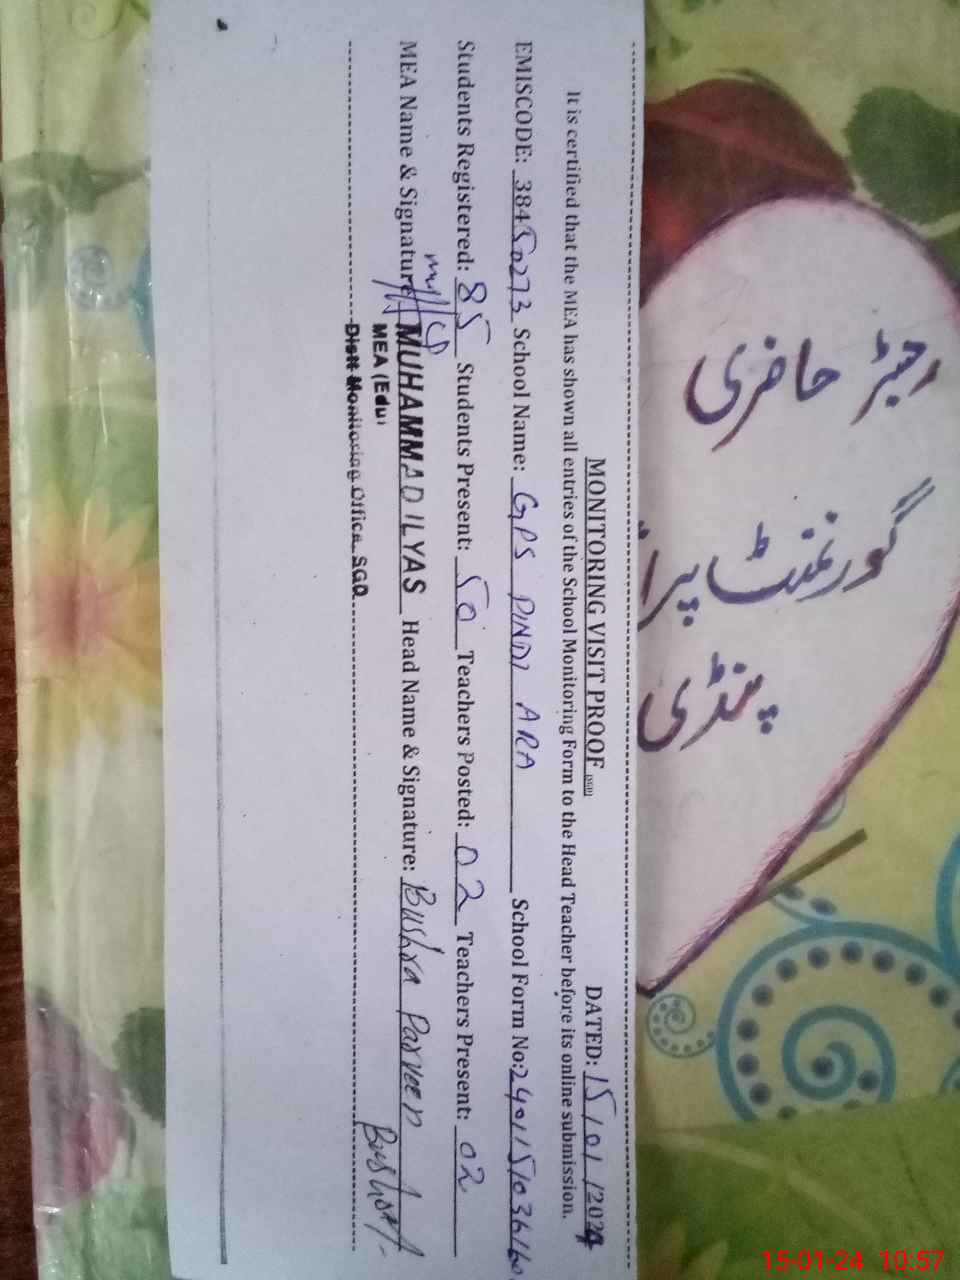 MONITORING VISIT PROOF (SGD) DATED: 15/01/2024
It is certified that the MEA has shown all entries of the School Monitoring Form to the Head Teacher before its online submission.
EMISCODE: 38450273 School Name: GPS PINDI ARA School Form No:
Students Registered: 85 Students Present: 50 Teachers Posted: 02 Teachers Present: 02
MEA Name & Signature MUHAMMAD ILYAS Head Name & Signature: Bushra Parveen
MEA (Edu)
Distt Monitoring Office SGD
حاضری
گورنمنٹ
پنڈی
15-01-24 10:57